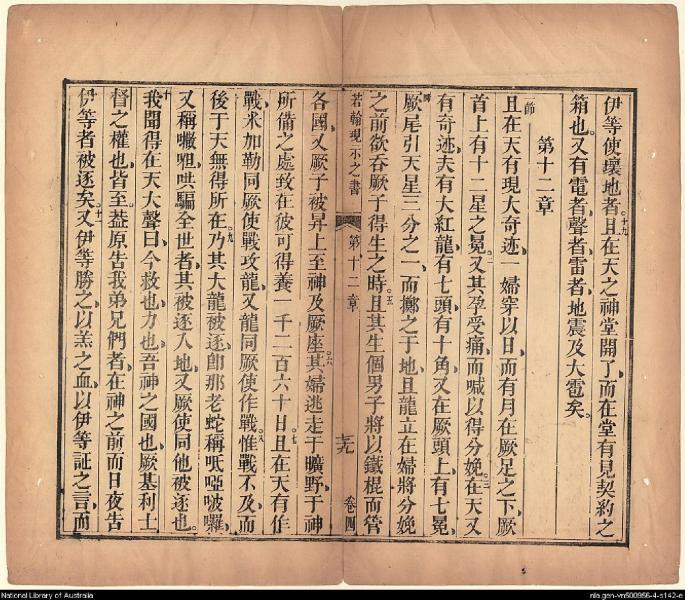 伊等使壞地者十九且在天之神堂開了而在堂有見契約之
箱也又有電者聲者雷者地震及大雹矣
第十二章
節一且在天有現大奇迹一婦穿以日而有月在厥足之下厥
首上有十二星之冕二又其孕受痛而喊以得分娩三在天又
有奇迹夫有大紅龍有七頭有十角又在厥頭上有七冕
厥尾引天星三分之一而擲之于地且龍立在婦將分娩
之前欲吞厥子得生之時五且其生個男子將以鐵棍而管
若翰現示之書 第十二章 卷四
各國又厥子被昇上至神及厥座其六婦逃走于曠野于神
所備之處致在彼可得養一千二百六十日七且在天有作
戰米加勒同厥使戰攻龍又龍同厥使作戰八惟戰不及而
後于天無得所在九乃其大龍被逐卽那老蛇稱呧啞啵囉
又稱㘔呾哄騙全世者其被逐入地又厥使同他被逐也
十我聞得在天大聲曰今救也力也吾神之國也厥基利士
督之權也皆至葢原告我弟兄們者在神之前而日夜告
伊等者被逐矣十一又伊等勝之以羔之血以伊等証之言而
National Library of Australia
nla.gen-vn500956-4-s142-e